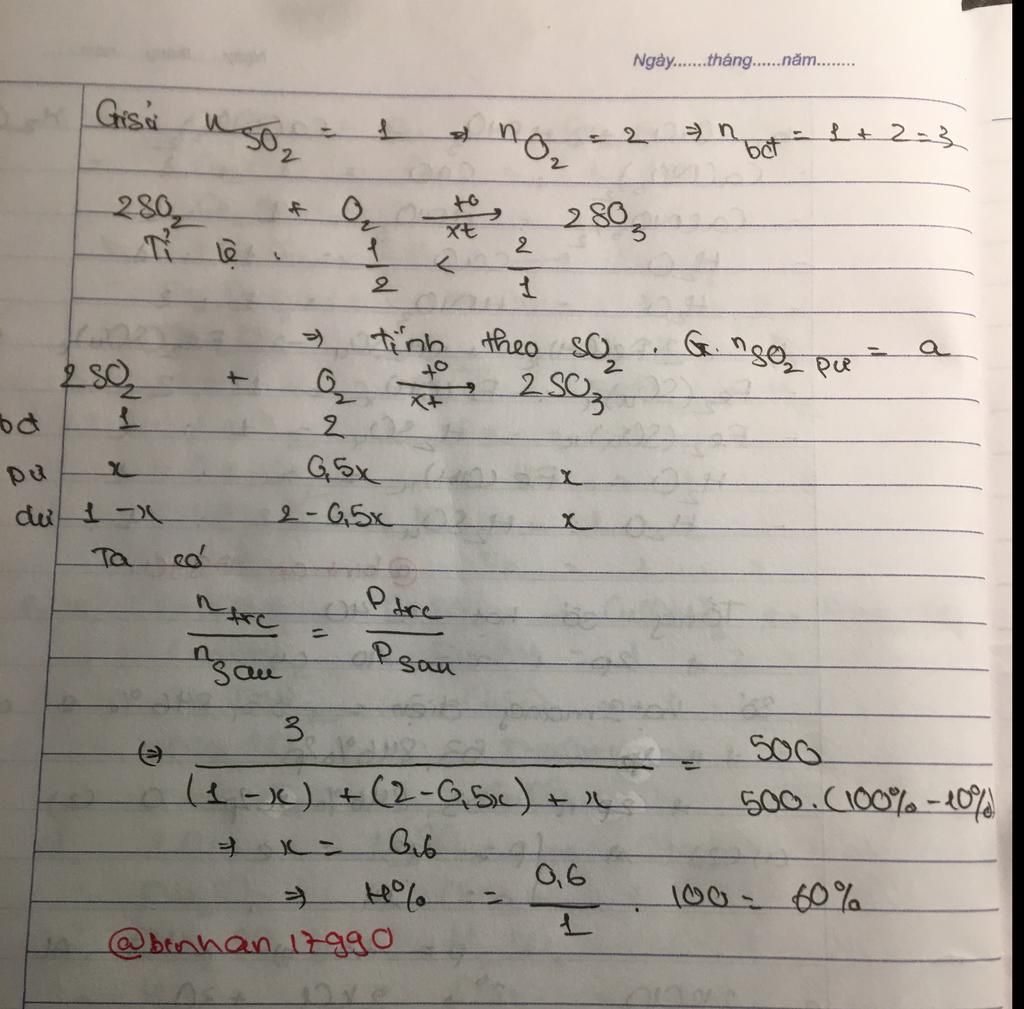 Ngày.......tháng......năm........
Giả sử n SO₂ = 1 ⇒ n O₂ = 2 ⇒ n bđ = 1 + 2 = 3
2SO₂ + O₂ →(t⁰, xt) 2SO₃
Tỉ lệ : 1/2 < 2/1
⇒ tính theo SO₂ . G. n SO₂ pư = a
2SO₂ + O₂ →(t⁰, xt) 2SO₃
bđ 1 2
pư x 0,5x x
dư 1 - x 2 - 0,5x x
Ta có
n trc / n sau = P trc / P sau
(⇒) 3 / ((1 - x) + (2 - 0,5x) + x) = 500 / 500.(100% - 10%)
⇒ x = 0,6
⇒ H% = 0,6/1 . 100 = 60%
@binhan17990